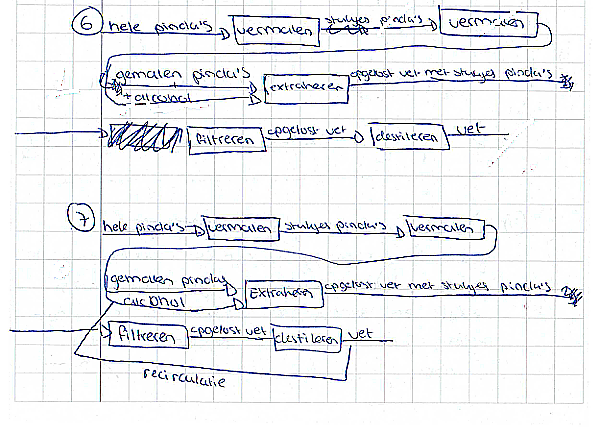 6 hele pinda's vermalen stukjes pinda's vermalen
gemalen pinda's extraheren opgelost vet met stukjes pinda's
+ alcohol
filtreren opgelost vet destileren vet
7 hele pinda's vermalen stukjes pinda's vermalen
gemalen pindas Extraheren opgelost vet met stukjes pinda's
alcohol
filtreren opgelost vet destileren vet
recirculatie